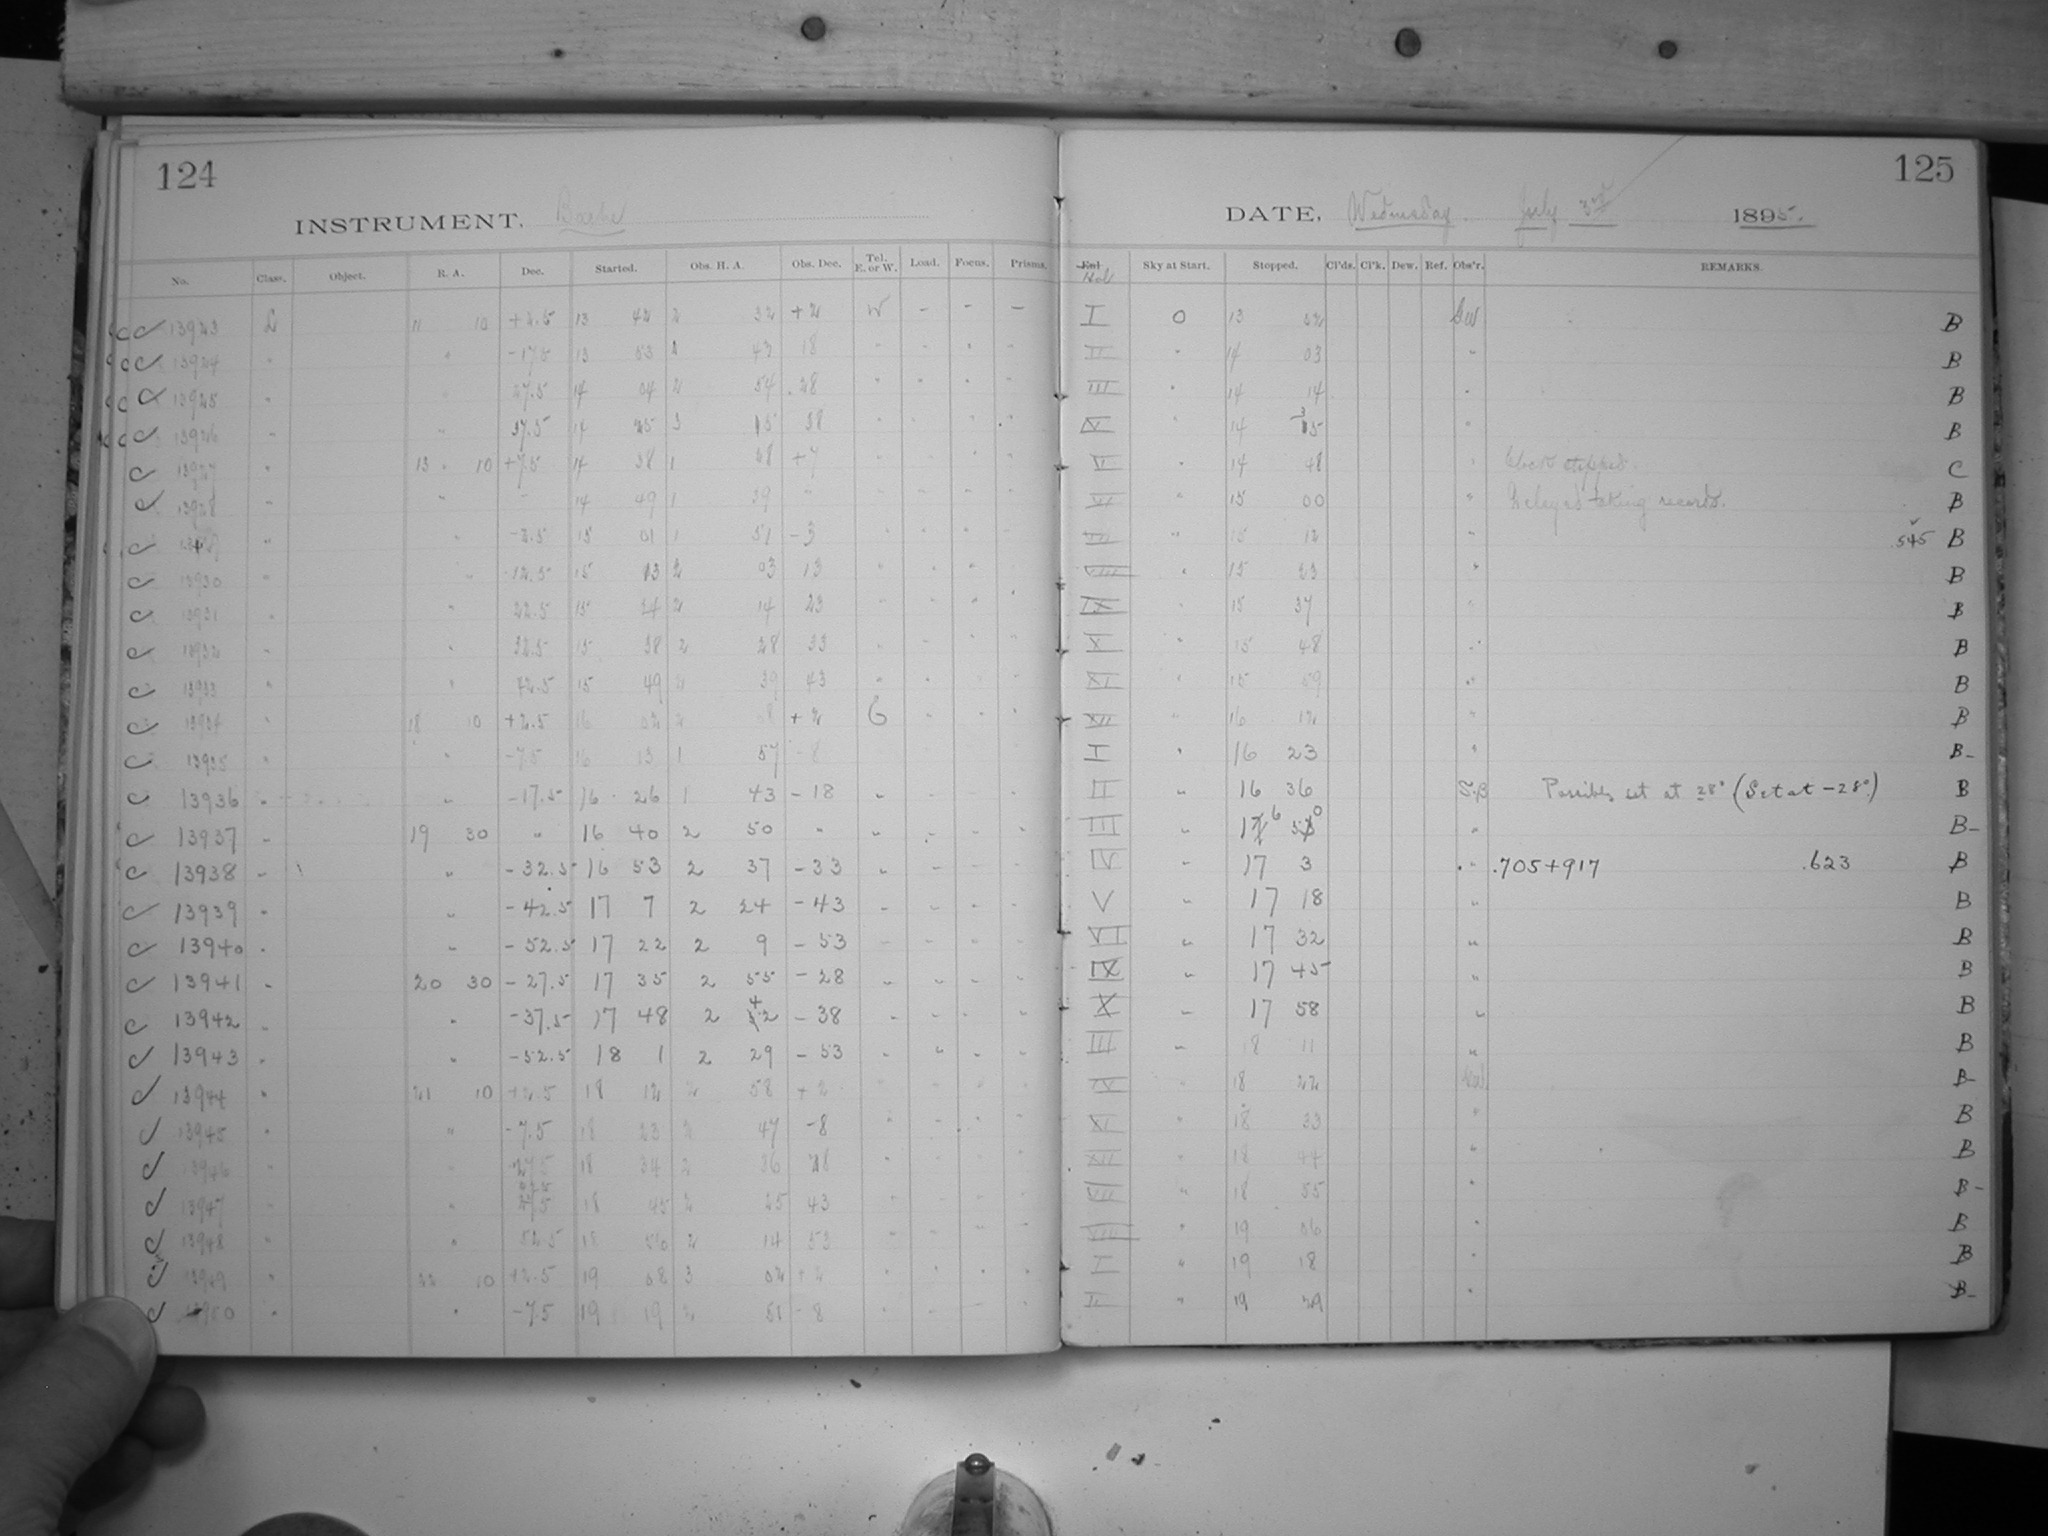 124
INSTRUMENT, Bache
No. Class. Object. R. A. Dec. Started. Obs. H. A. Obs. Dec. Tel. E. or W. Load. Focus. Prisms.
13923 L 11 10 +2.5 13 42 2 32 +2 W - - -
13924 " " -17.5 13 53 2 43 18 " - - -
13925 " 27.5 14 04 2 54 28 " - - -
13926 " " 37.5 14 25 3 15 38
13927 " 13 10 +7.5 14 38 1 28 +7
13928 " " " 14 49 1 39 "
" " -2.5 15 01 1 51 -3
13930 " " 12.5 15 13 2 03 13
13931 " 22.5 15 24 2 14 23
13932 " " 32.5 15 38 2 28 33
13933 " " 42.5 15 49 2 39 43
13934 " 18 10 +2.5 16 02 2 08 +2 E
13935 " " -7.5 16 13 1 57 -8
13936 " " -17.5 16 26 1 43 -18 "
13937 " 19 30 " 16 40 2 50 " "
13938 " " -32.5 16 53 2 37 -33 "
13939 " " -42.5 17 7 2 24 -43 "
13940 " " -52.5 17 22 2 9 -53
13941 " 20 30 -27.5 17 35 2 55 -28 "
13942 " " -37.5 17 48 2 42 -38 "
13943 " " -52.5 18 1 2 29 -53 "
13944 " 21 10 +2.5 18 12 2 58 +2
13945 " " -7.5 18 23 2 47 -8
13946 " 18 34 2 36 28
13947 " " 18 45 2 25 43
13948 " " 52.5 18 56 2 14 53
13949 " 22 10 +2.5 19 08 3 02 +2
13950 " " -7.5 19 19 2 51 -8
125
DATE, Wednesday July 3rd 1895.
Hol Sky at Start. Stopped. Cl'ds. Cl'k. Dew. Ref. Obs'r. REMARKS.
I 0 13 52 B
II " 14 03 " B
III " 14 14 " B
IV " 14 35 " B
VI " 14 48 " Clock stopped. C
VII " 15 00 " Delayed taking records. B
" 15 12 " 545 B
VIII " 15 23 " B
IX " 15 37 " B
X " 15 48 " B
XI " 15 59 " B
XII " 16 12 " B
I " 16 23 " B-
II " 16 36 Possibly set at 28° (Set at -28°) B
III " 16 50 " B-
IV " 17 3 " .705+917 .623 B
V " 17 18 " B
VI " 17 32 " B
IX " 17 45 " B
X " 17 58 " B
III " 18 11 " B
IV " 18 22 B-
XI " 18 33 " B
XII " 18 44 " B
VII " 18 55 " B-
VIII " 19 06 " B
I " 19 18 " B
II " 19 29 " B-